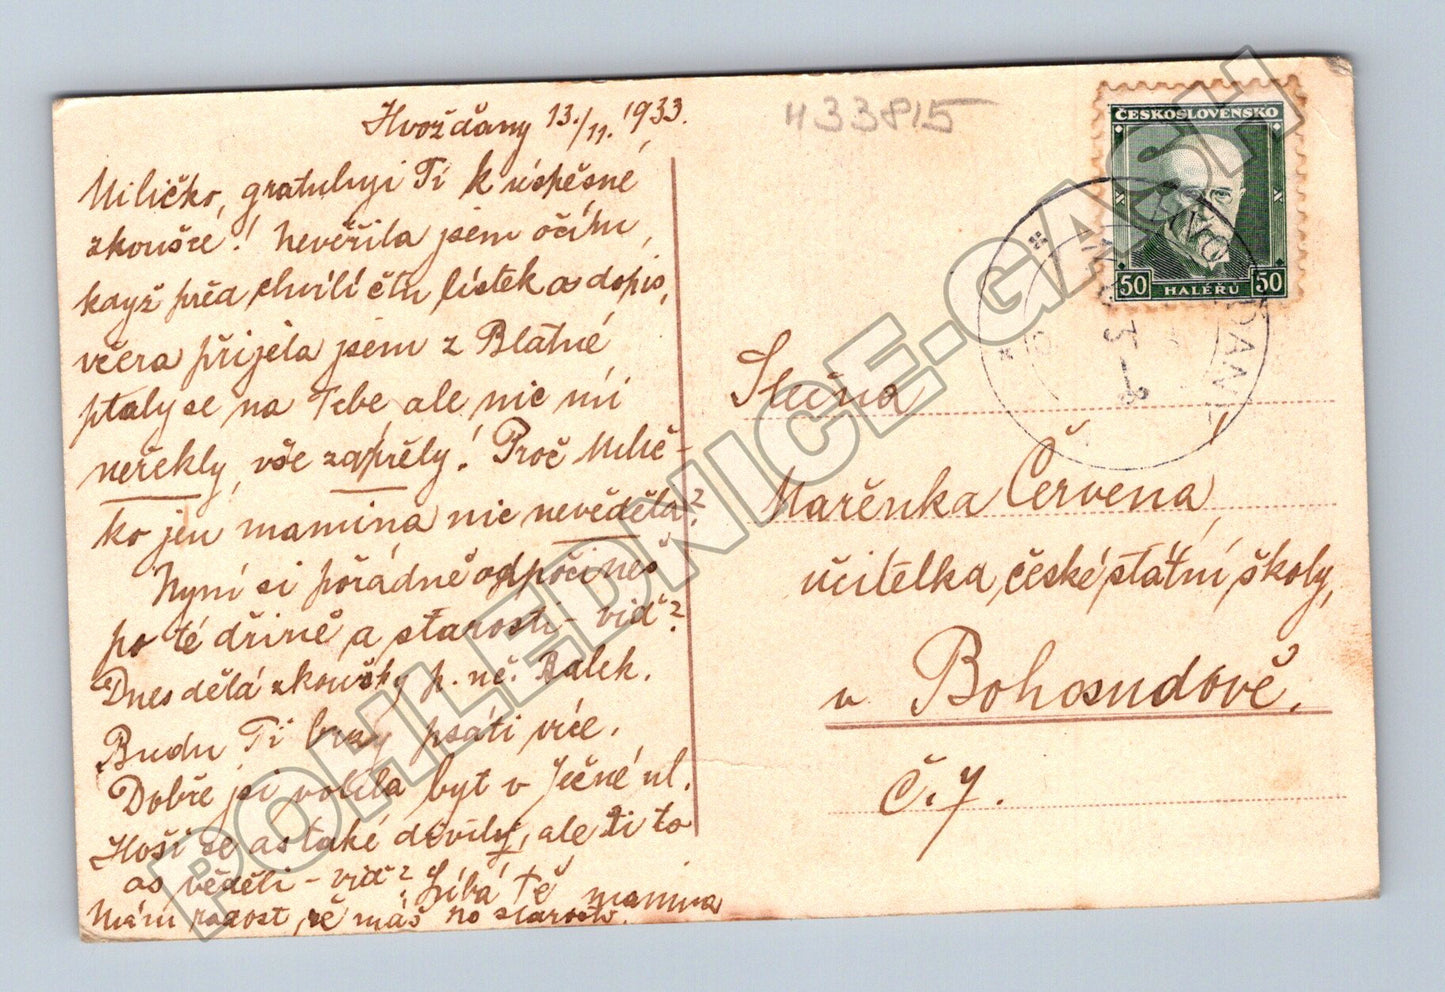 Hvožďany 13./11. 1933.
433815
Miličko, gratuluji Ti k úspěšné
zkoušce! Nevěřila jsem očím,
když před chvílí čtu lístek a dopis,
včera přijela jsem z Blatné
ptaly se na Tebe, ale nic mi
neřekly, vše zapřely! Proč Milič-
ko jen mamina nic nevěděla?
Nyní si pořádně odpočineš
po té dřině a starosti - viď?
Dnes dělá zkoušky p. uč. Balek.
Budu Ti brzy psáti více.
Dobře jsi volila byt v Ječné ul.
Hoši se as také divily, ale Ti to
as věděli - viď? Líbá Tě mamina
Mám radost, že máš po starosti.
ČESKOSLOVENSKO
50 HALÉŘŮ 50
Slečna
Mařenka Červena,
učitelka, české státní školy,
v Bohosudově.
Č. 7.
POHLEDNICE-GASH